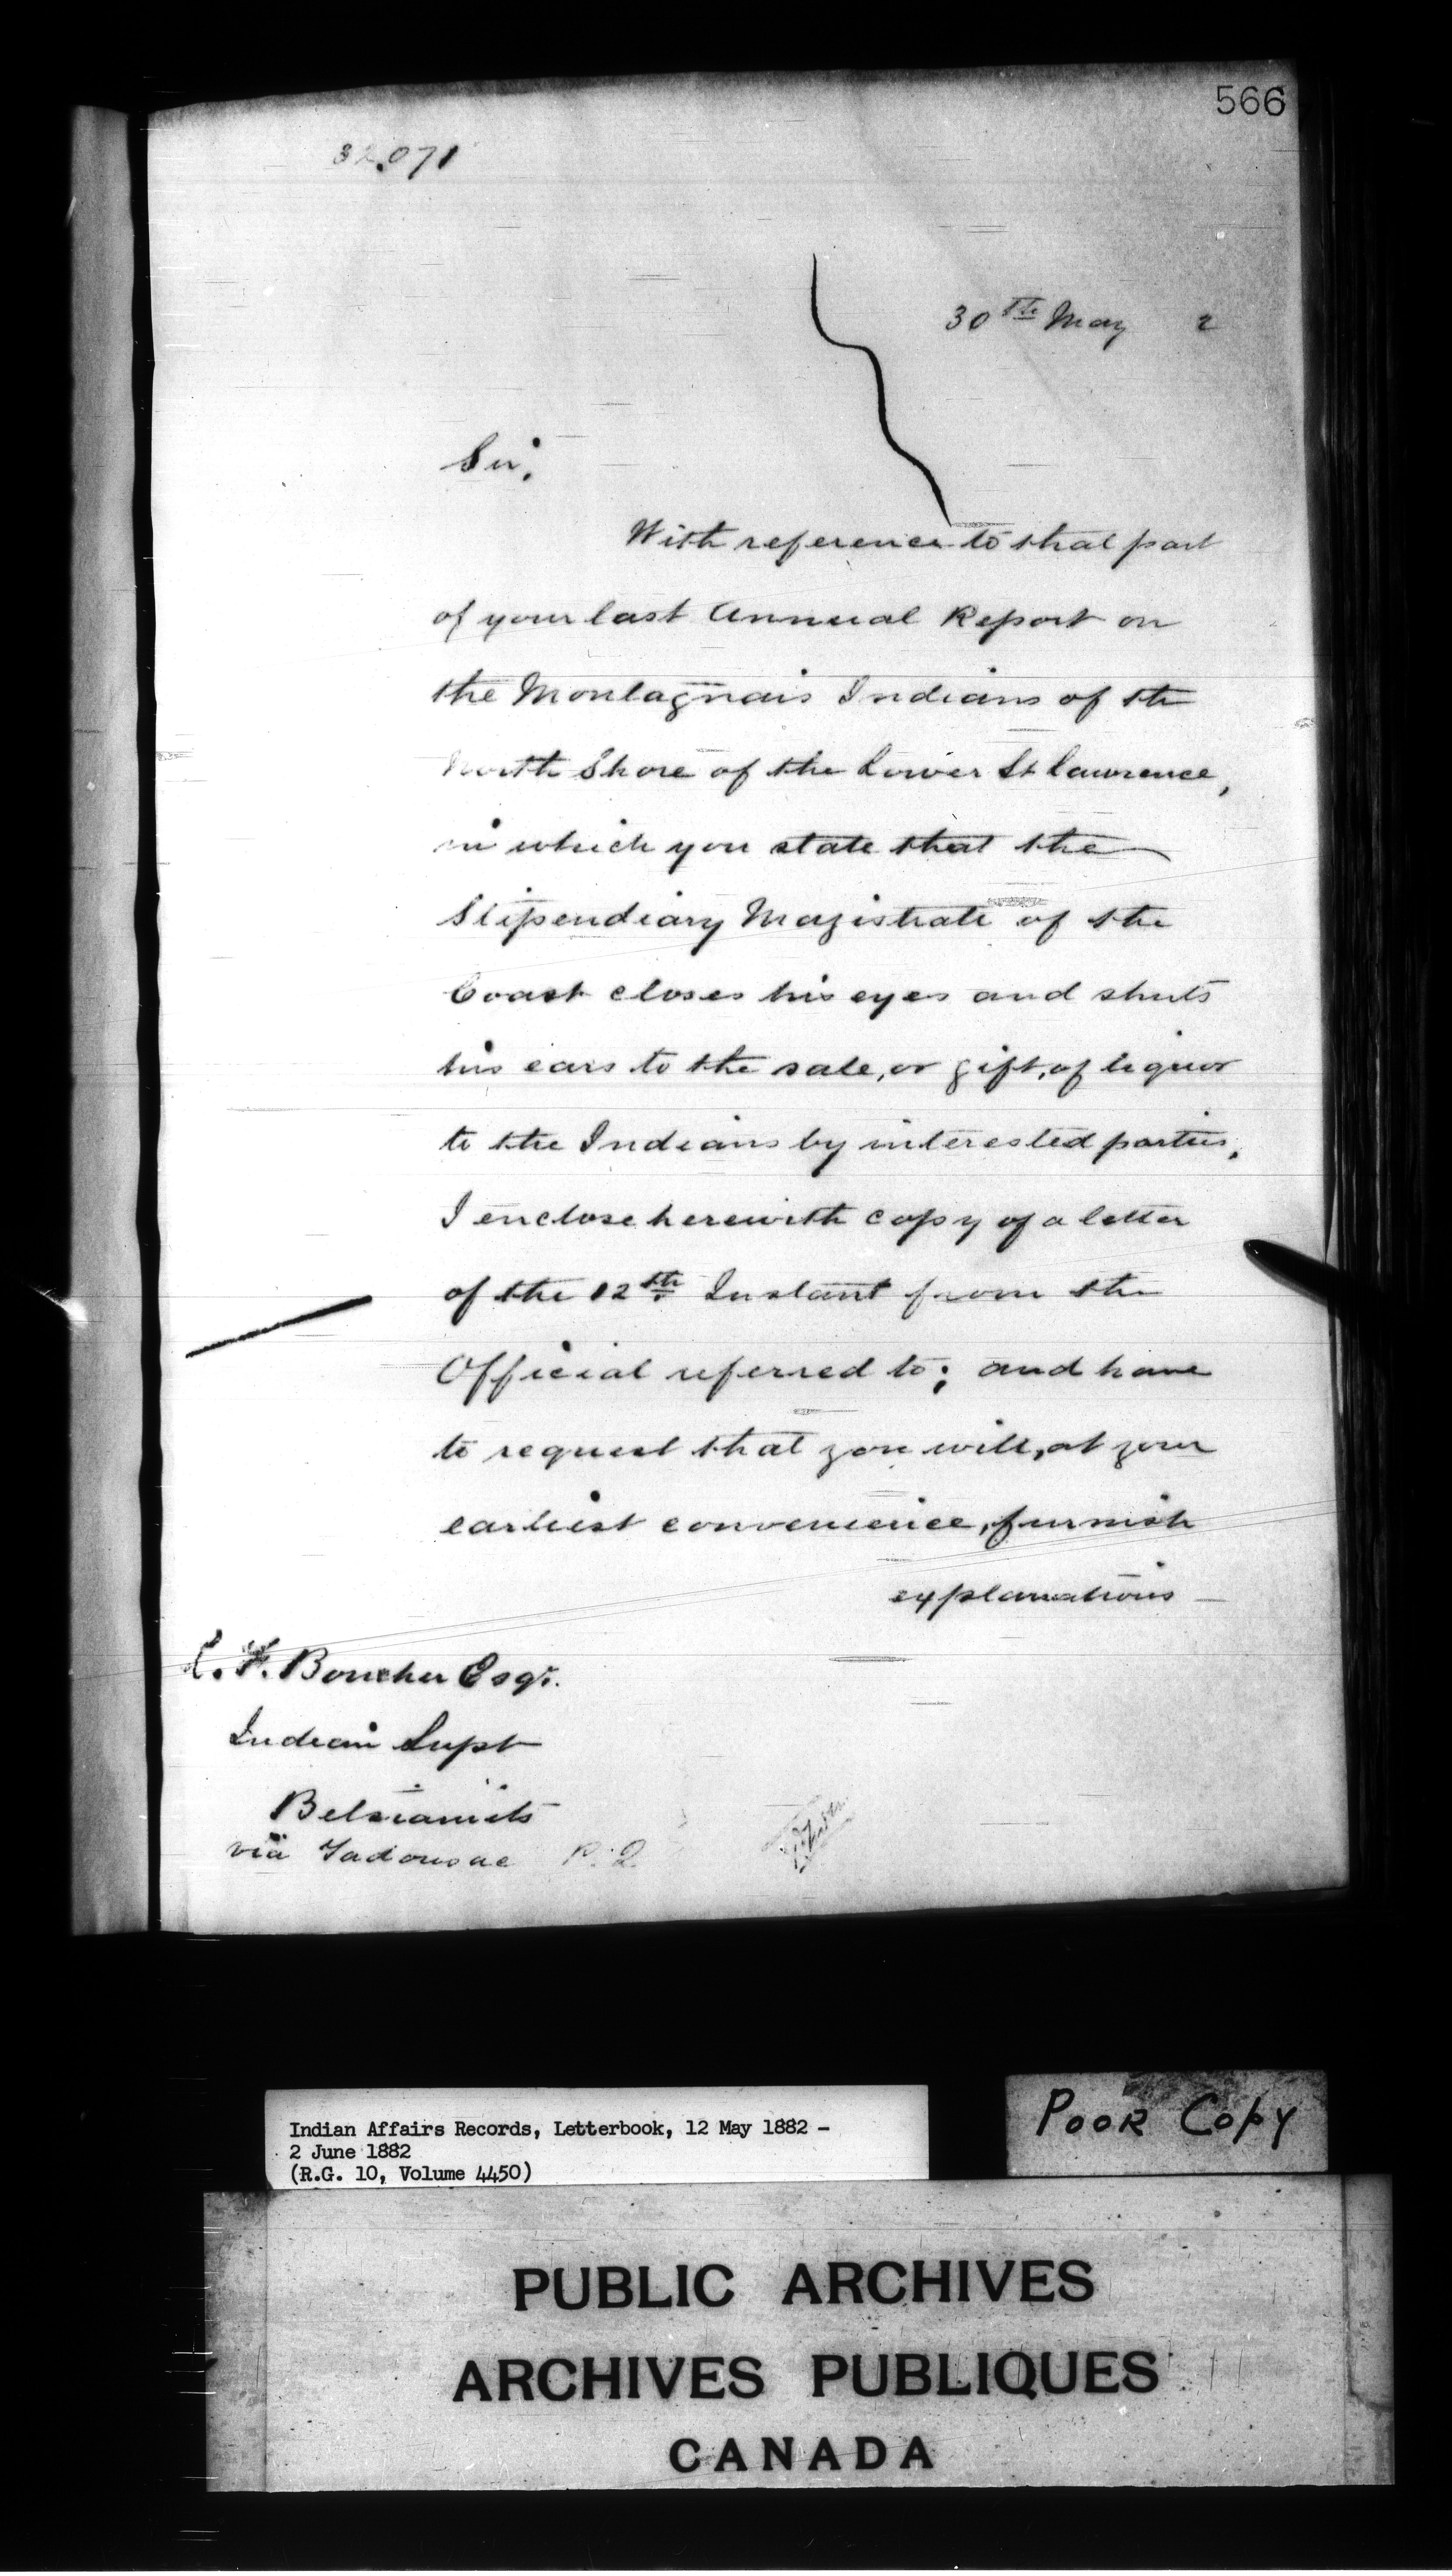 566
32,071
30th May 2
Sir,
With reference to that part
of your last Annual Report on
the Montagnais Indians of the
North Shore of the Lower St Lawrence,
in which you state that the
Stipendiary Magistrate of the
Coast closes his eyes and shuts
his ears to the sale, or gift, of liquor
to the Indians by interested parties,
I enclose herewith copy of a letter
of the 12th Instant from the
Official referred to; and have
to request that you will, at your
earliest convenience, furnish
explanations
L. F. Boucher Esqr.
Indian Supt
Betsiamits
via Tadousac P.Q.
Indian Affairs Records, Letterbook, 12 May 1882 -
2 June 1882
(R.G. 10, Volume 4450)
POOR COPY
PUBLIC ARCHIVES
ARCHIVES PUBLIQUES
CANADA